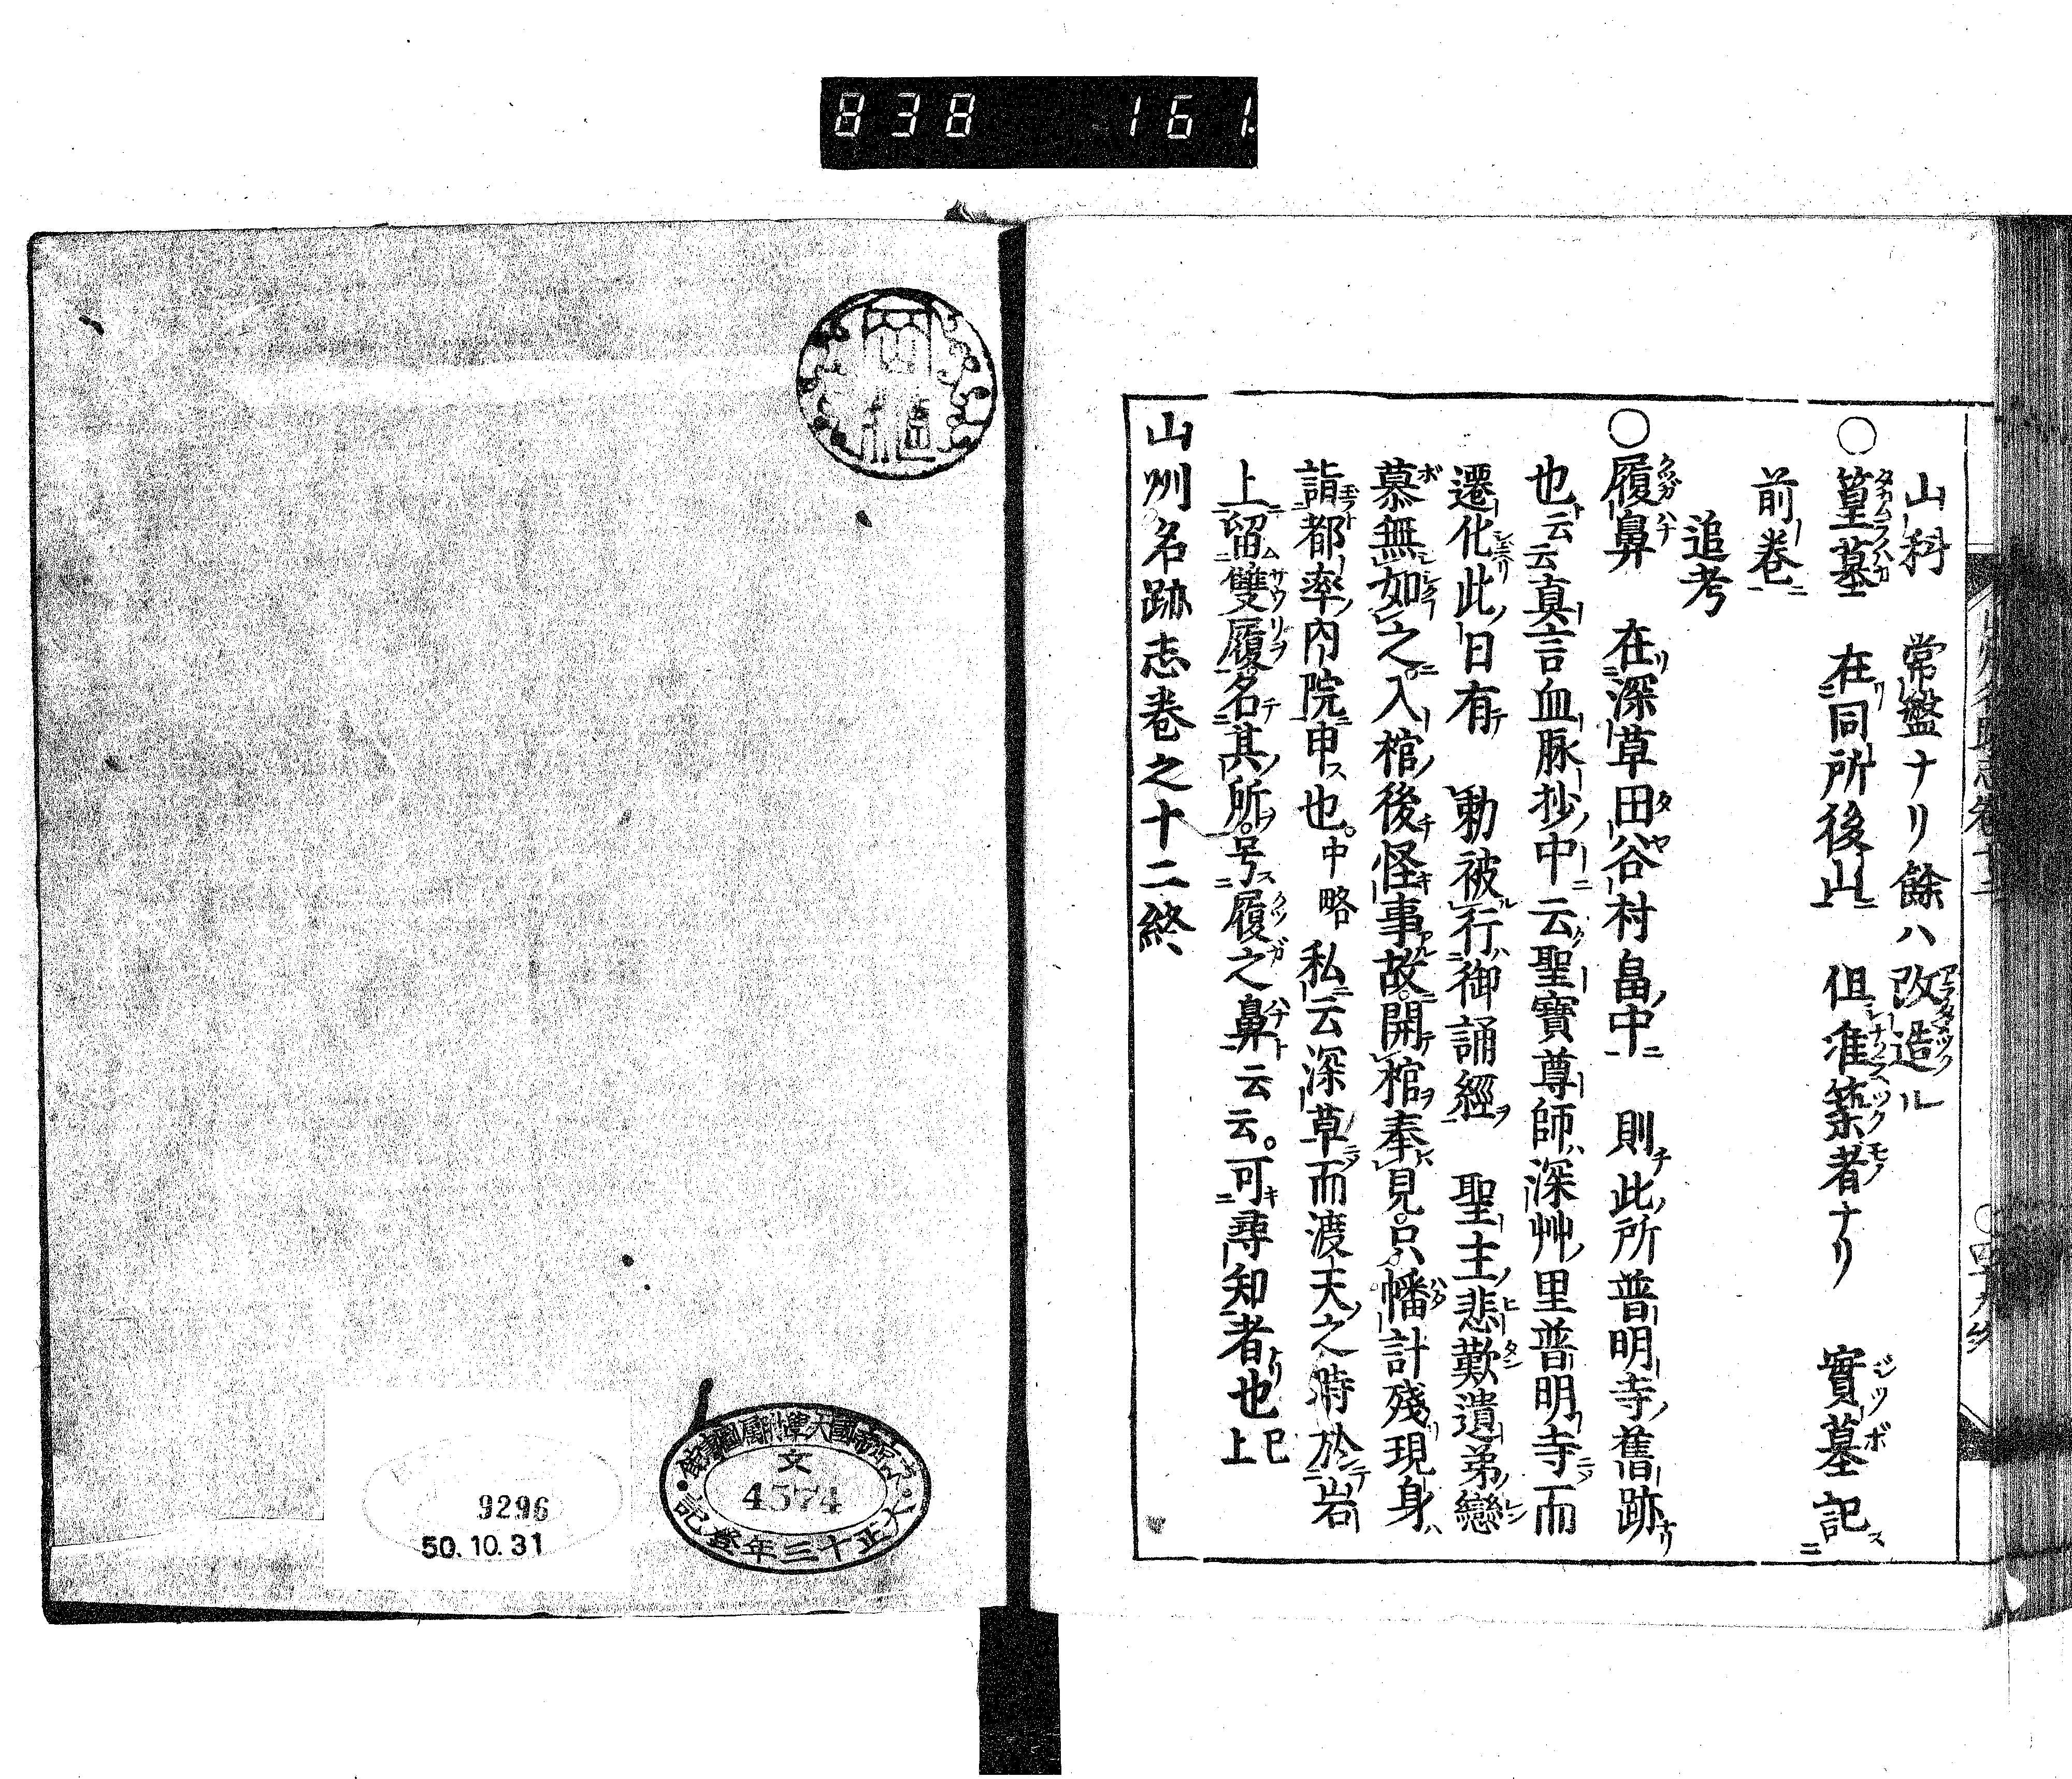 838 161
山科 常盤ナリ餘ハ改造ル
○篁墓 在同所後山 但準築者ナリ 實墓記
前巻
追考
○履鼻 在深草田谷村畠中 則此所普明寺舊跡
也云云真言血脉抄中云聖寶尊師深艸里普明寺而
遷化此日有 勅被行御誦經 聖主悲歎遺弟戀
慕無如之入棺後怪事故開棺奉見只幡計殘現身
詣都率内院申也。中略 私云深草而渡天之時於岩
上留雙履名其所号履之鼻云云。可尋知者也已上
山州名跡志巻之十二終
文
4574
大正十三年登記
9296
50.10.31